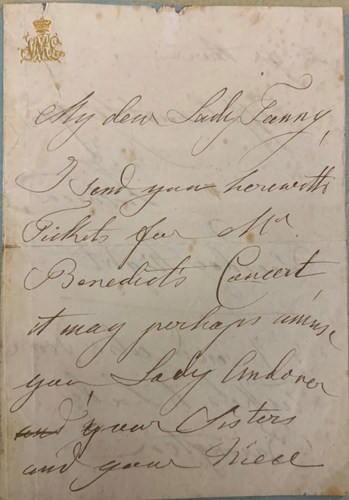 My dear Lady Fanny,
I send you herewith
Tickets for Mr
Benedict's Concert
it may perhaps amuse
you, Lady Andover
and your Sisters
and your Niece